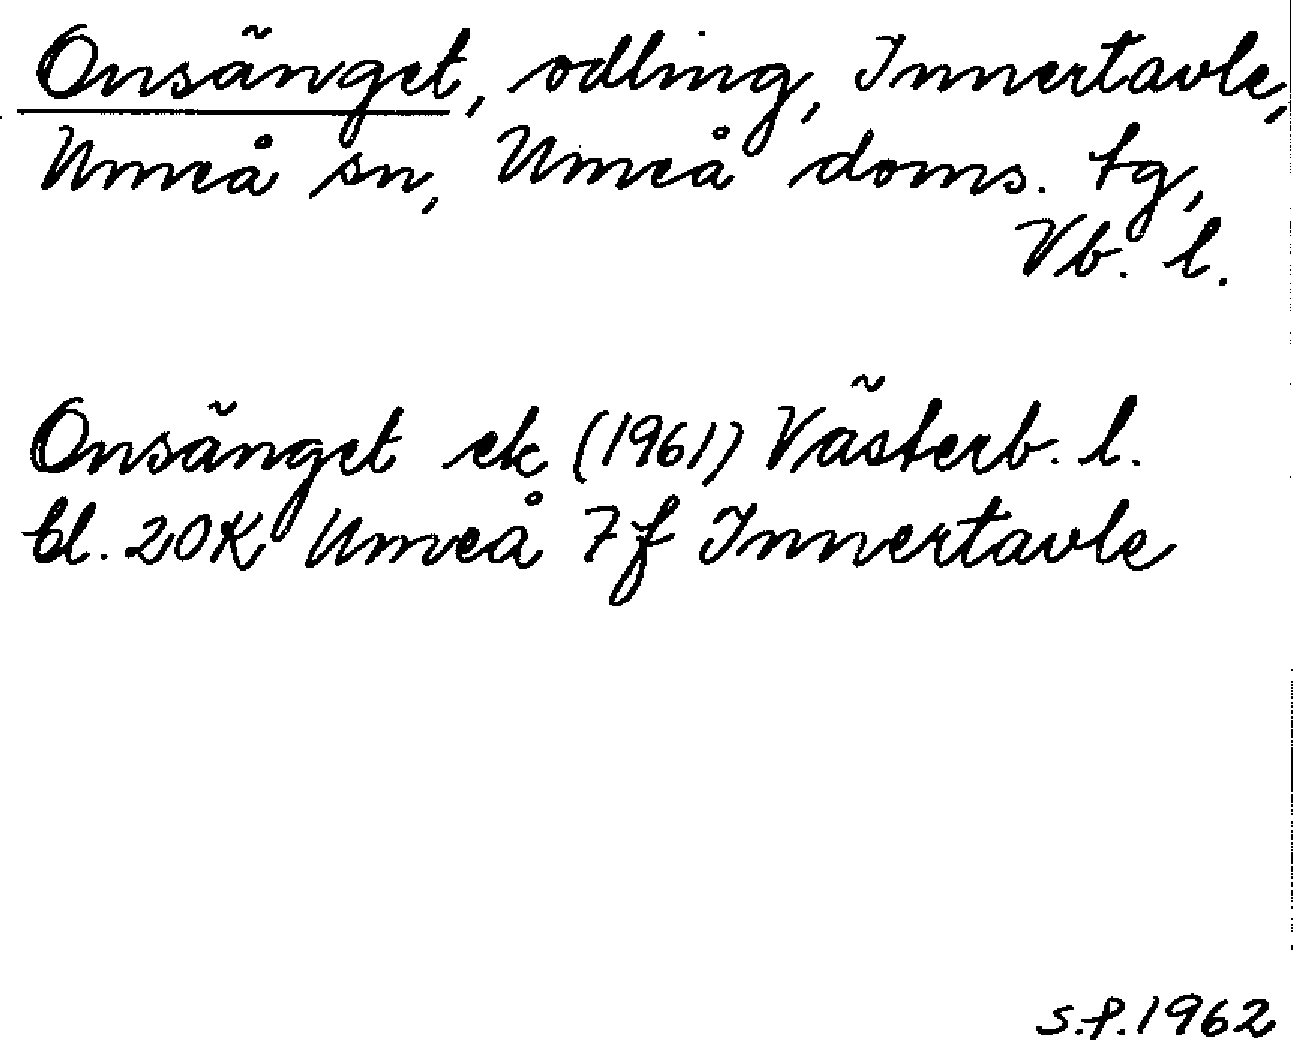 Onsänget, odling, Innertavle,
Umeå sn, Umeå doms. tg,
Vb. l.
Onsänget ek (1961) Västerb. l.
bl. 20K Umeå 7f Innertavle
S.f. 1962